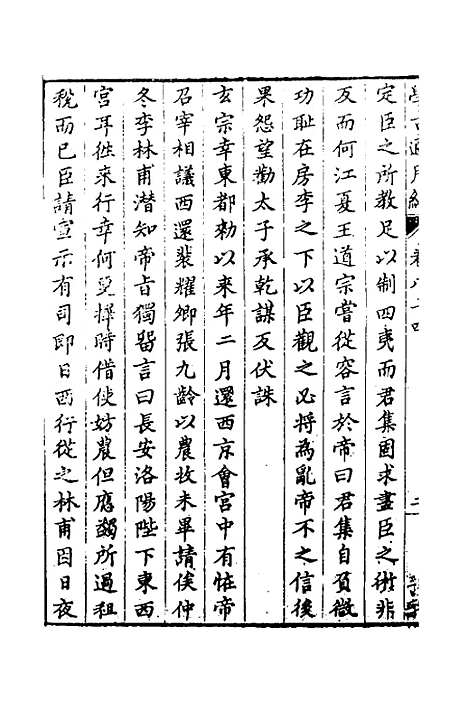 定臣之所教足以制四夷而君集固求盡臣之術非
反而何江夏王道宗嘗從容言於帝曰君集自負微
功耻在房李之下以臣觀之必將為亂帝不之信後
果怨望勸太子承乾謀反伏誅
玄宗幸東都勑以來年二月還西京會宮中有恠帝
召宰相議西還裴耀卿張九齡以農收未畢請俟仲
冬李林甫潜知帝㫖獨留言曰長安洛陽陛下東西
宮耳徃來行幸何更擇時借使妨農但應蠲所過租
稅而已臣請宣示有司即日西行從之林甫因日夜